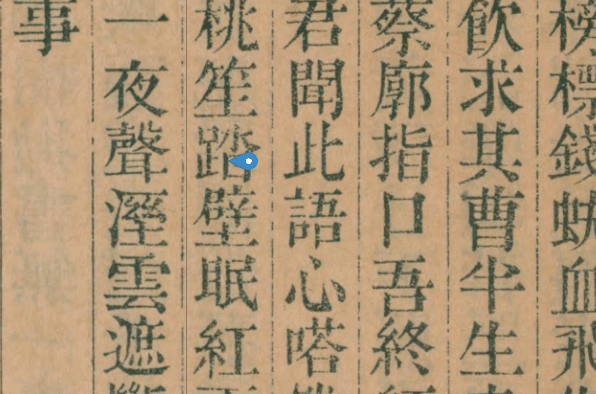 榜標錢蚨血飛
飲求其曹半生
蔡廓指口吾終
君聞此語心嗒
桃笙踏壁眠紅
一夜聲溼雲遮
事